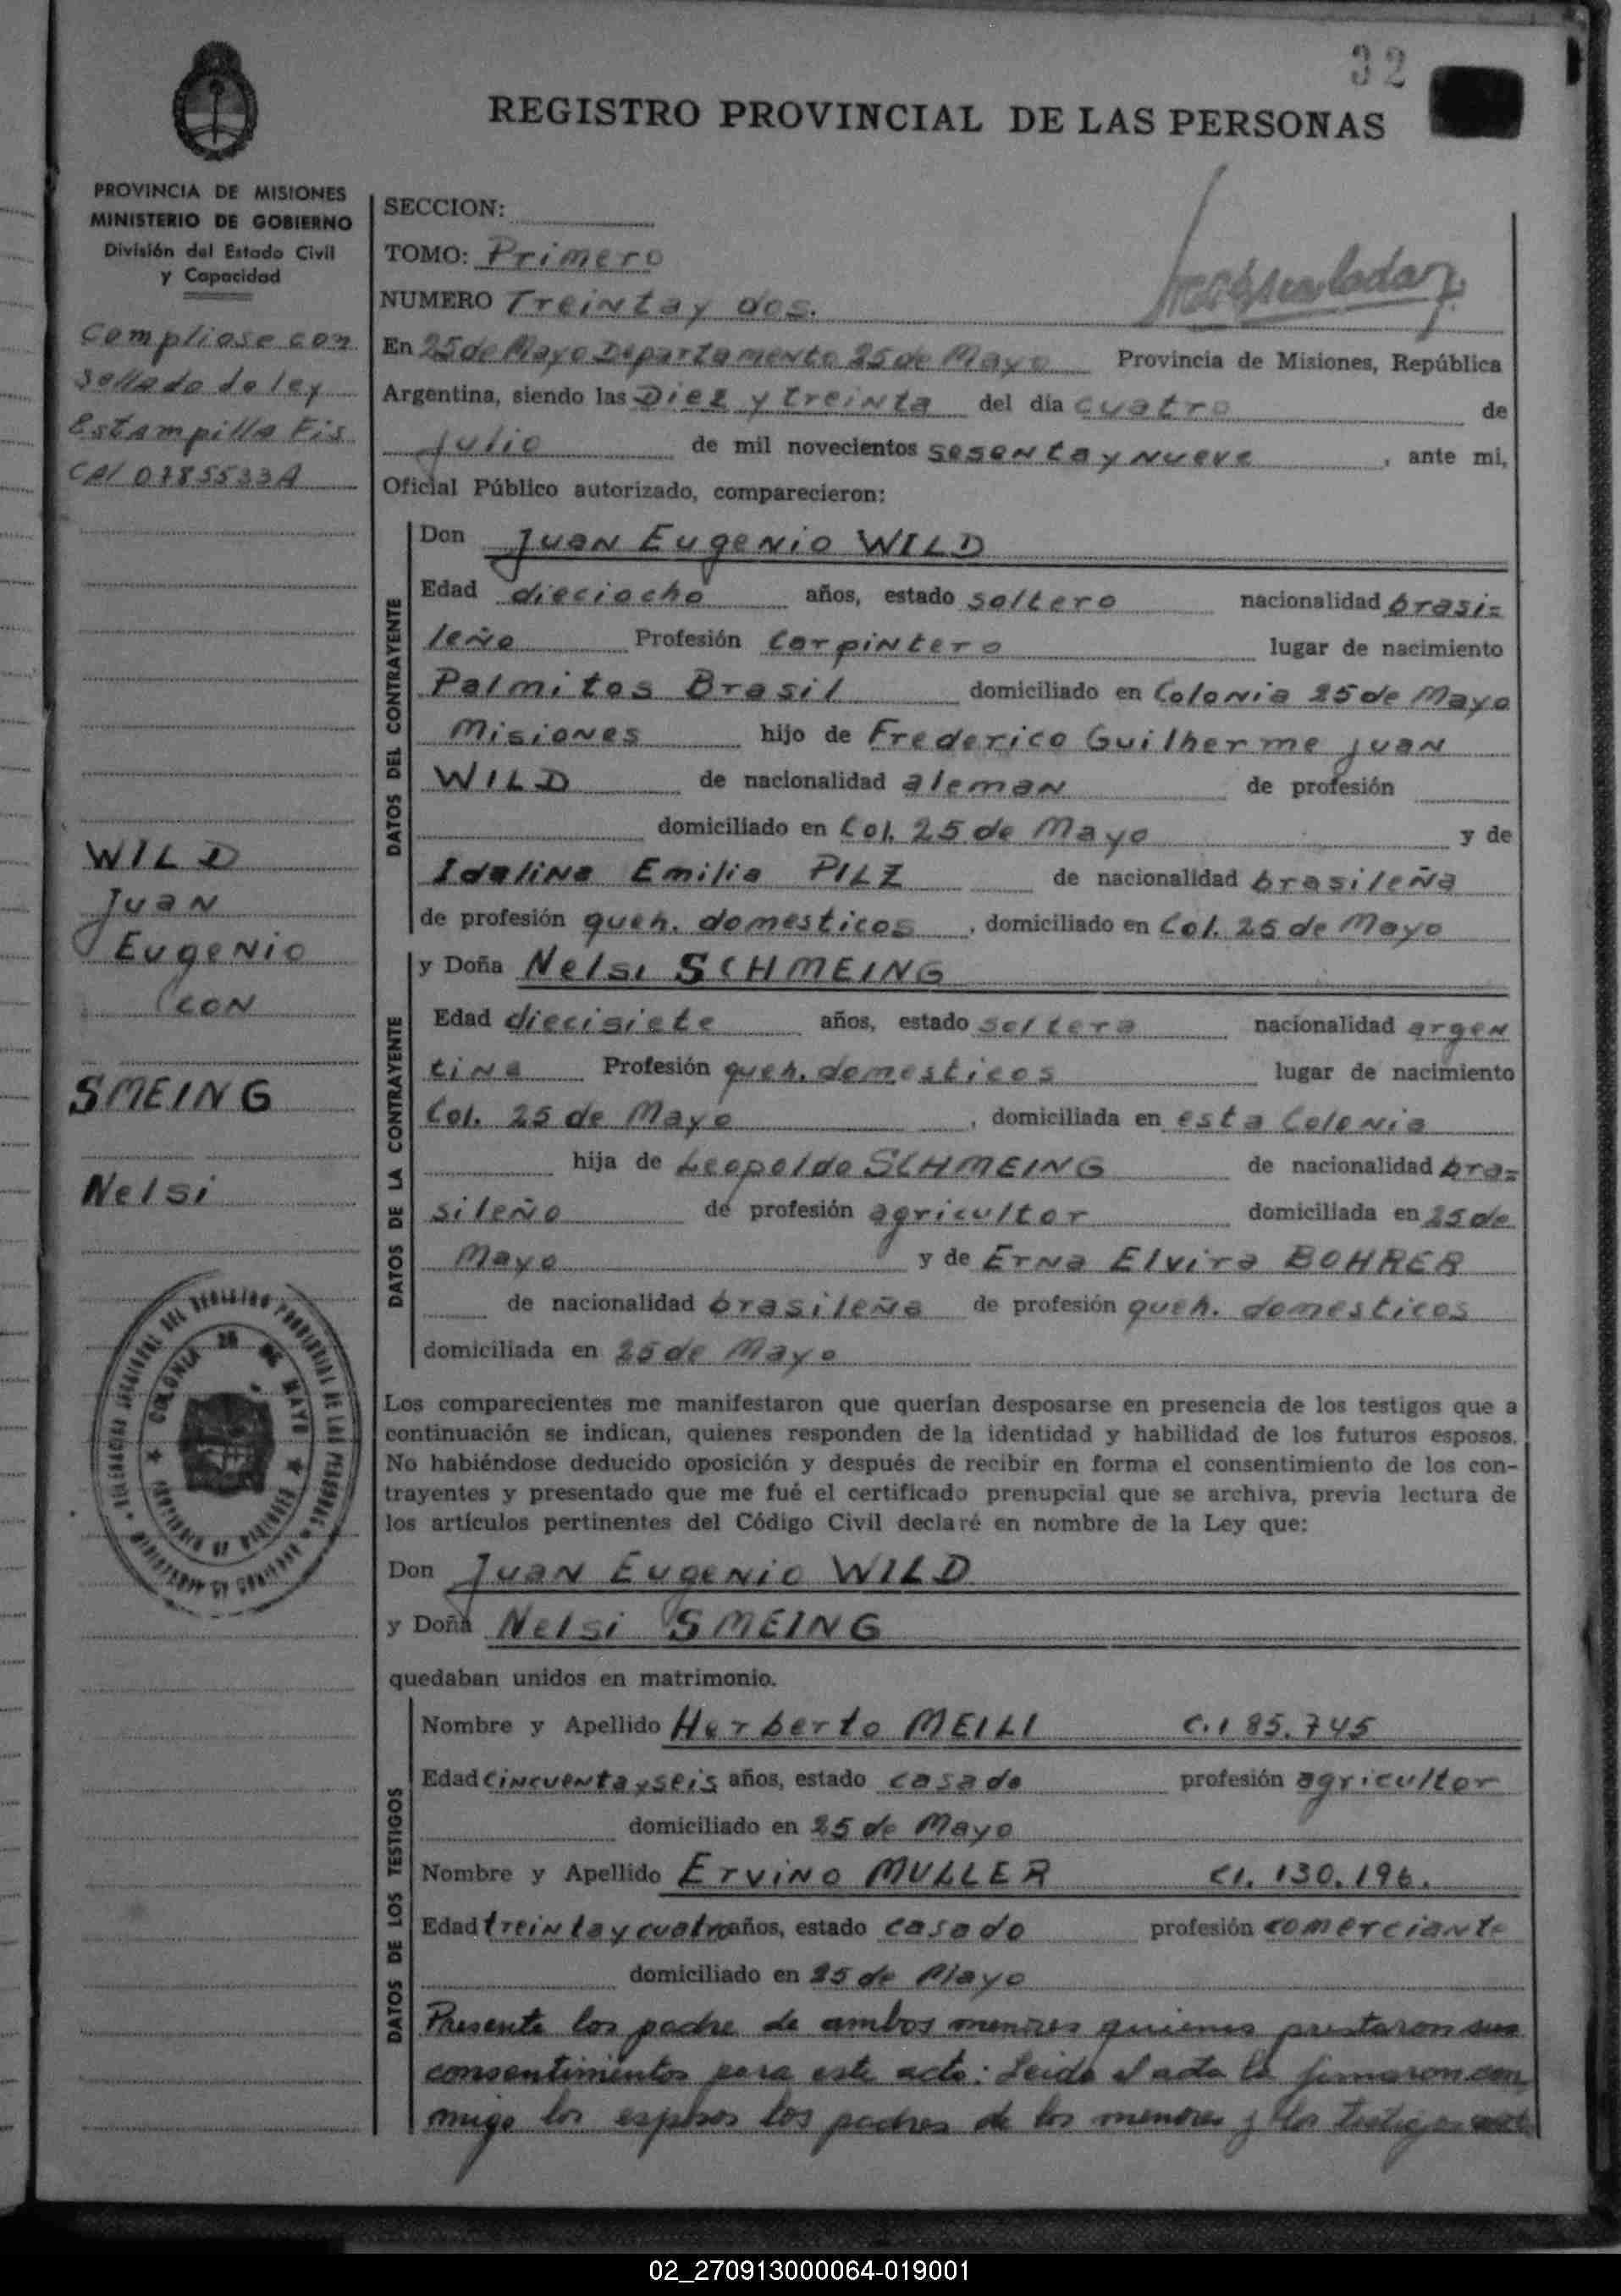 32
REGISTRO PROVINCIAL DE LAS PERSONAS
PROVINCIA DE MISIONES
MINISTERIO DE GOBIERNO
División del Estado Civil
y Capacidad
Compliose con
sellado de ley
Estampilla Fis.
CA/ 0785533A
WILD
Juan
Eugenio
CON
SMEING
Nelsi
COLONIA 25 DE MAYO
SECCION:
TOMO: Primero
NUMERO Treinta y dos.
En 25 de Mayo Departamento 25 de Mayo Provincia de Misiones, República
Argentina, siendo las Diez y treinta del día cuatro de
Julio de mil novecientos sesenta y nueve, ante mi,
Oficial Público autorizado, comparecieron:
DATOS DEL CONTRAYENTE
Don Juan Eugenio WILD
Edad dieciocho años, estado soltero nacionalidad brasi=
leño Profesión Carpintero lugar de nacimiento
Palmitos Brasil domiciliado en Colonia 25 de Mayo
Misiones hijo de Frederico Guilherme Juan
WILD de nacionalidad aleman de profesión
domiciliado en Col. 25 de Mayo y de
Idalina Emilia PILZ de nacionalidad brasileña
de profesión queh. domesticos, domiciliado en Col. 25 de Mayo
DATOS DE LA CONTRAYENTE
y Doña Nelsi SCHMEING
Edad diecisiete años, estado soltera nacionalidad argen
tina Profesión queh. domesticos lugar de nacimiento
Col. 25 de Mayo, domiciliada en esta Colonia
hija de Leopoldo SCHMEING de nacionalidad bra=
sileño de profesión agricultor domiciliada en 25 de
Mayo y de Erna Elvira BOHRER
de nacionalidad brasileña de profesión queh. domesticos
domiciliada en 25 de Mayo
Los comparecientes me manifestaron que querían desposarse en presencia de los testigos que a
continuación se indican, quienes responden de la identidad y habilidad de los futuros esposos.
No habiéndose deducido oposición y después de recibir en forma el consentimiento de los con-
trayentes y presentado que me fué el certificado prenupcial que se archiva, previa lectura de
los artículos pertinentes del Código Civil declaré en nombre de la Ley que:
Don Juan Eugenio WILD
y Doña Nelsi SMEING
quedaban unidos en matrimonio.
DATOS DE LOS TESTIGOS
Nombre y Apellido Herberto MEILI C.I 85.745
Edad cincuenta y seis años, estado casado profesión agricultor
domiciliado en 25 de Mayo
Nombre y Apellido Ervino MULLER CI. 130.196.
Edad treinta y cuatro años, estado casado profesión comerciante
domiciliado en 25 de Mayo
Presente los padre de ambos menores quienes prestaron sus
consentimientos para este acto: Leida el acta la firmaron con
migo los esposos los padres de los menores y los testigos
02_270913000064-019001